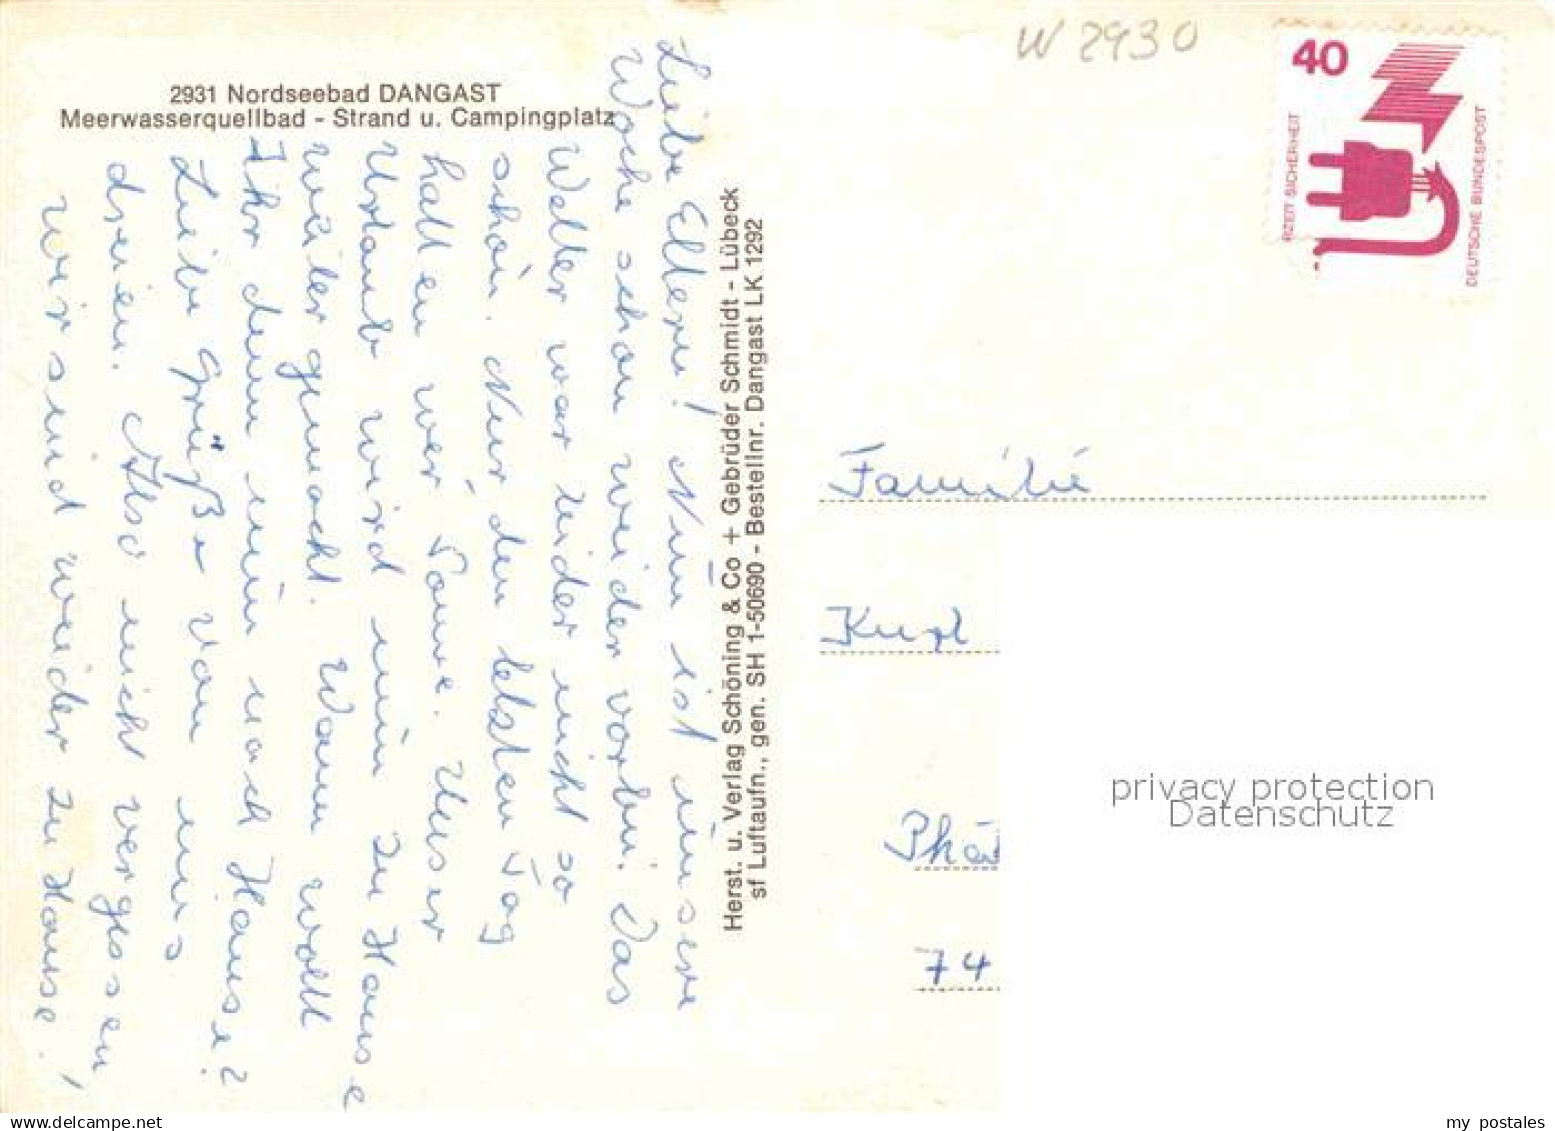 2931 Nordseebad DANGAST
Meerwasserquellbad - Strand u. Campingplatz
Liebe Eltern! Nun ist unsere
Woche schon weider vorbei. Das
Wetter war leider nicht so
schön. Nur den letzten Tag
hatten wir Sonne. Unser
Urlaub wird nun zu Hause
weiter gemacht. Wann wollt
Ihr denn nun nach Hause?
Liebe Grüße von uns
dreien. Also nicht vergessen
wir sind weider zu Hause!
Herst. u. Verlag Schöning & Co + Gebrüder Schmidt - Lübeck
sf Luftaufn., gen. SH 1-50690 - Bestellnr. Dangast LK 1292
W 2930
40
RZEIT SICHERHEIT
DEUTSCHE BUNDESPOST
Familie
Kurt
74
privacy protection
Datenschutz
my postales
www.delcampe.net